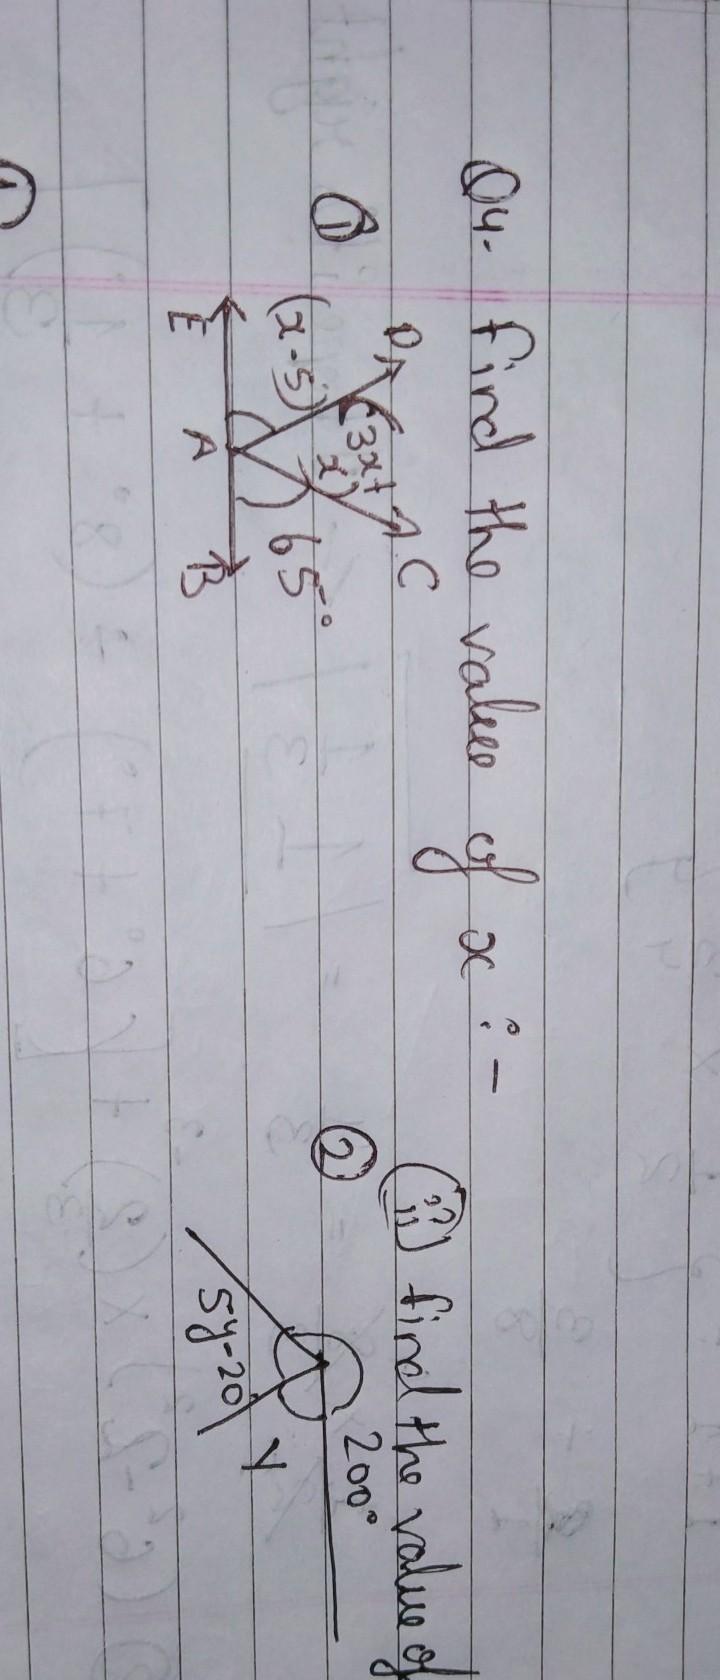 Q4. find the value of x :-
(ii) find the value of
①
D
C
(3x+
x)
(x-5)
65°
E
A
B
②
200°
5y-20
y
①